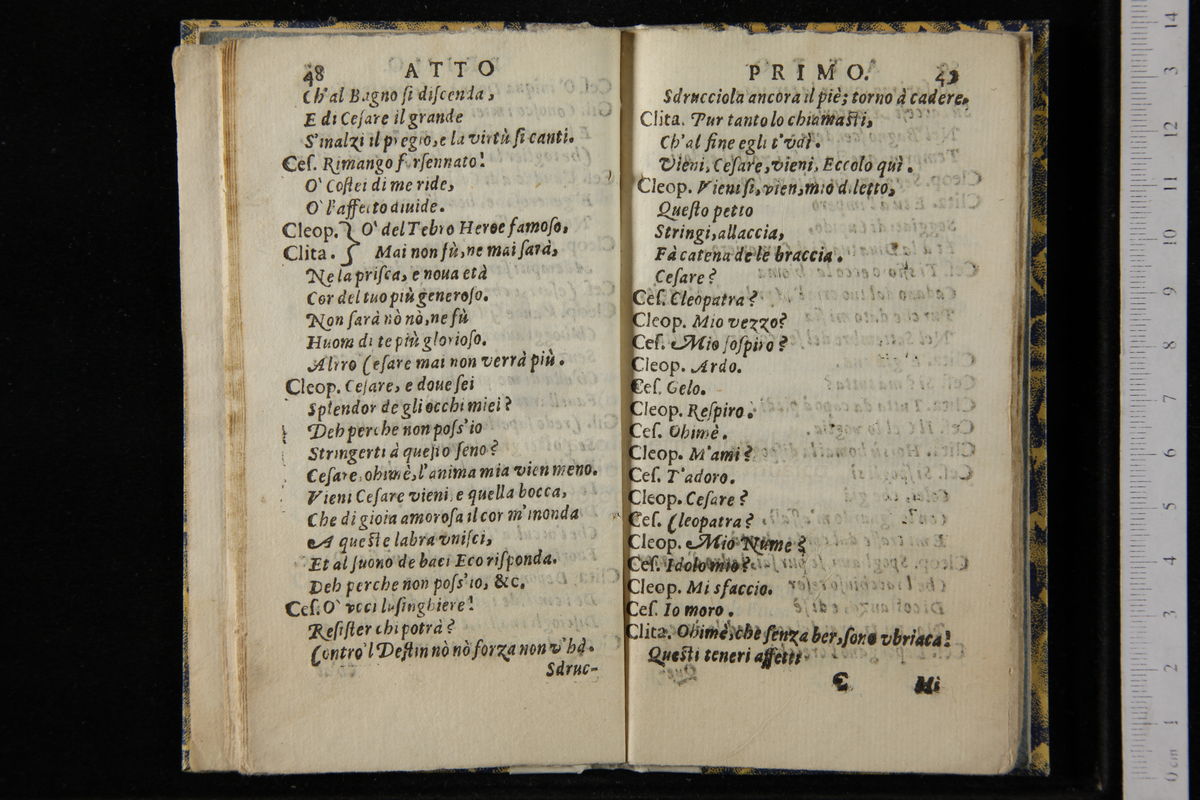 48 ATTO
Ch'al Bagno ſi diſcenda,
E di Ceſare il grande
S'inalzi il pregio, e la virtù ſi canti.
Ceſ. Rimango forſennato!
O' Coſtei di me ride,
O' l'affetto diuide.
Cleop. } O' del Tebro Heroe famoſo,
Clita. } Mai non fù, ne mai ſarà,
Ne la priſca, e noua età
Cor del tuo più generoſo.
Non ſarà nò nò, ne fù
Huom di te più glorioſo.
Alrro Ceſare mai non verrà più.
Cleop. Ceſare, e doue ſei
Splendor de gli occhi miei?
Deh perche non poſs'io
Stringerti à queſto ſeno?
Ceſare, ohimè, l'anima mia vien meno.
Vieni Ceſare vieni, e quella bocca,
Che di gioia amoroſa il cor m'inonda
A queſte labra vniſci,
Et al ſuono de baci Eco riſponda.
Deh perche non poſs'io, &c.
Ceſ. O' voci luſinghiere!
Reſiſter chi potrà?
Contro'l Deſtin nò nò forza non v'hà.
Sdruc-
PRIMO. 49
Sdrucciola ancora il piè; torno à cadere.
Clita. Pur tanto lo chiamaſti,
Ch'al fine egli t'vdì.
Vieni, Ceſare, vieni, Eccolo quì.
Cleop. Vieni ſì, vien, mio diletto,
Queſto petto
Stringi, allaccia,
Fà catena de le braccia.
Ceſare?
Ceſ. Cleopatra?
Cleop. Mio vezzo?
Ceſ. Mio ſoſpiro?
Cleop. Ardo.
Ceſ. Gelo.
Cleop. Reſpiro.
Ceſ. Ohimè.
Cleop. M'ami?
Ceſ. T'adoro.
Cleop. Ceſare?
Ceſ. Cleopatra?
Cleop. Mio Nume?
Ceſ. Idolo mio?
Cleop. Mi sfaccio.
Ceſ. Io moro.
Clita. Ohimè, che ſenza ber, ſono vbriaca!
Queſti teneri affetti
C Mi
0 cm 1 2 3 4 5 6 7 8 9 10 11 12 3 14